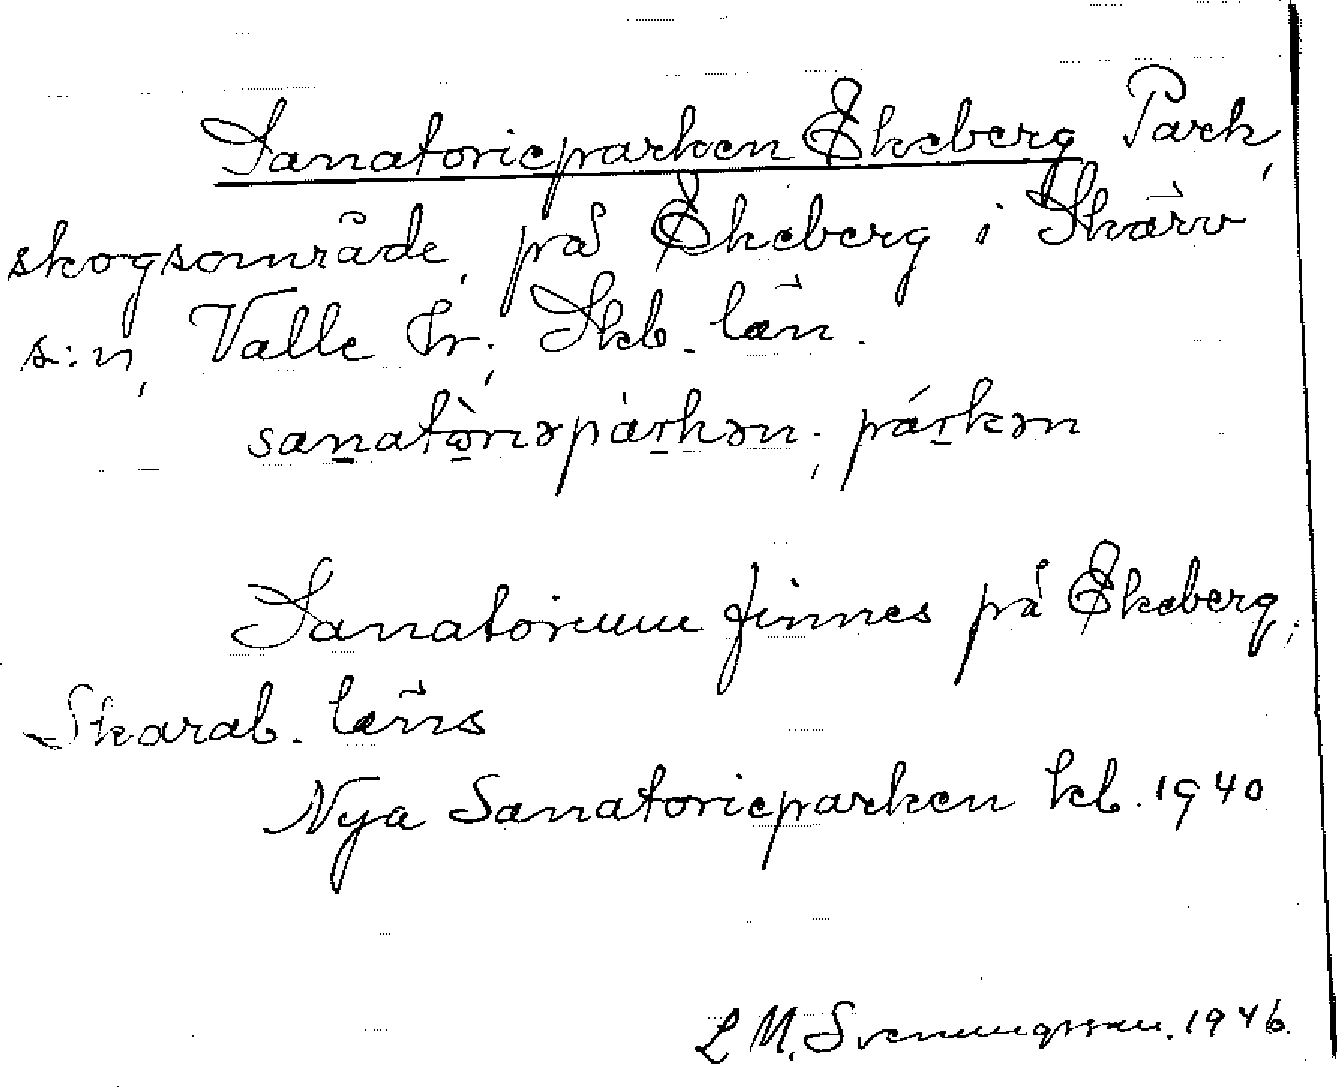 Sanatorieparken Ekeberg Park,
skogsområde, på Ekeberg i Skärv
s:n, Valle hr; Skb. län.
sanatòriəpàrkən; párkən
Sanatorium finnes på Ekeberg,
Skarab. läns
Nya Sanatorieparken kb. 1940
L M. Svenungsson. 1946.